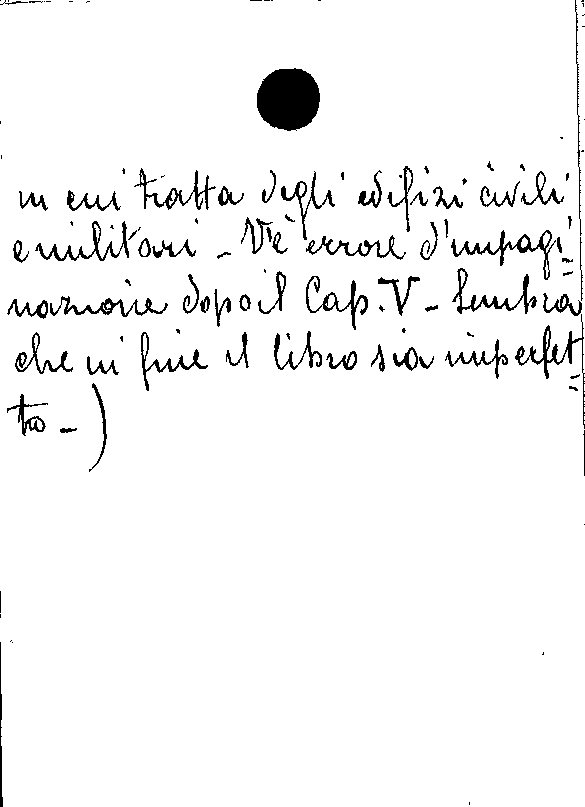 in cui tratta degli edifizi civili
e militari - V'è errore d'impagi=
nazione dopo il Cap. V - Sembra
che in fine il libro sia imperfet=
to - )